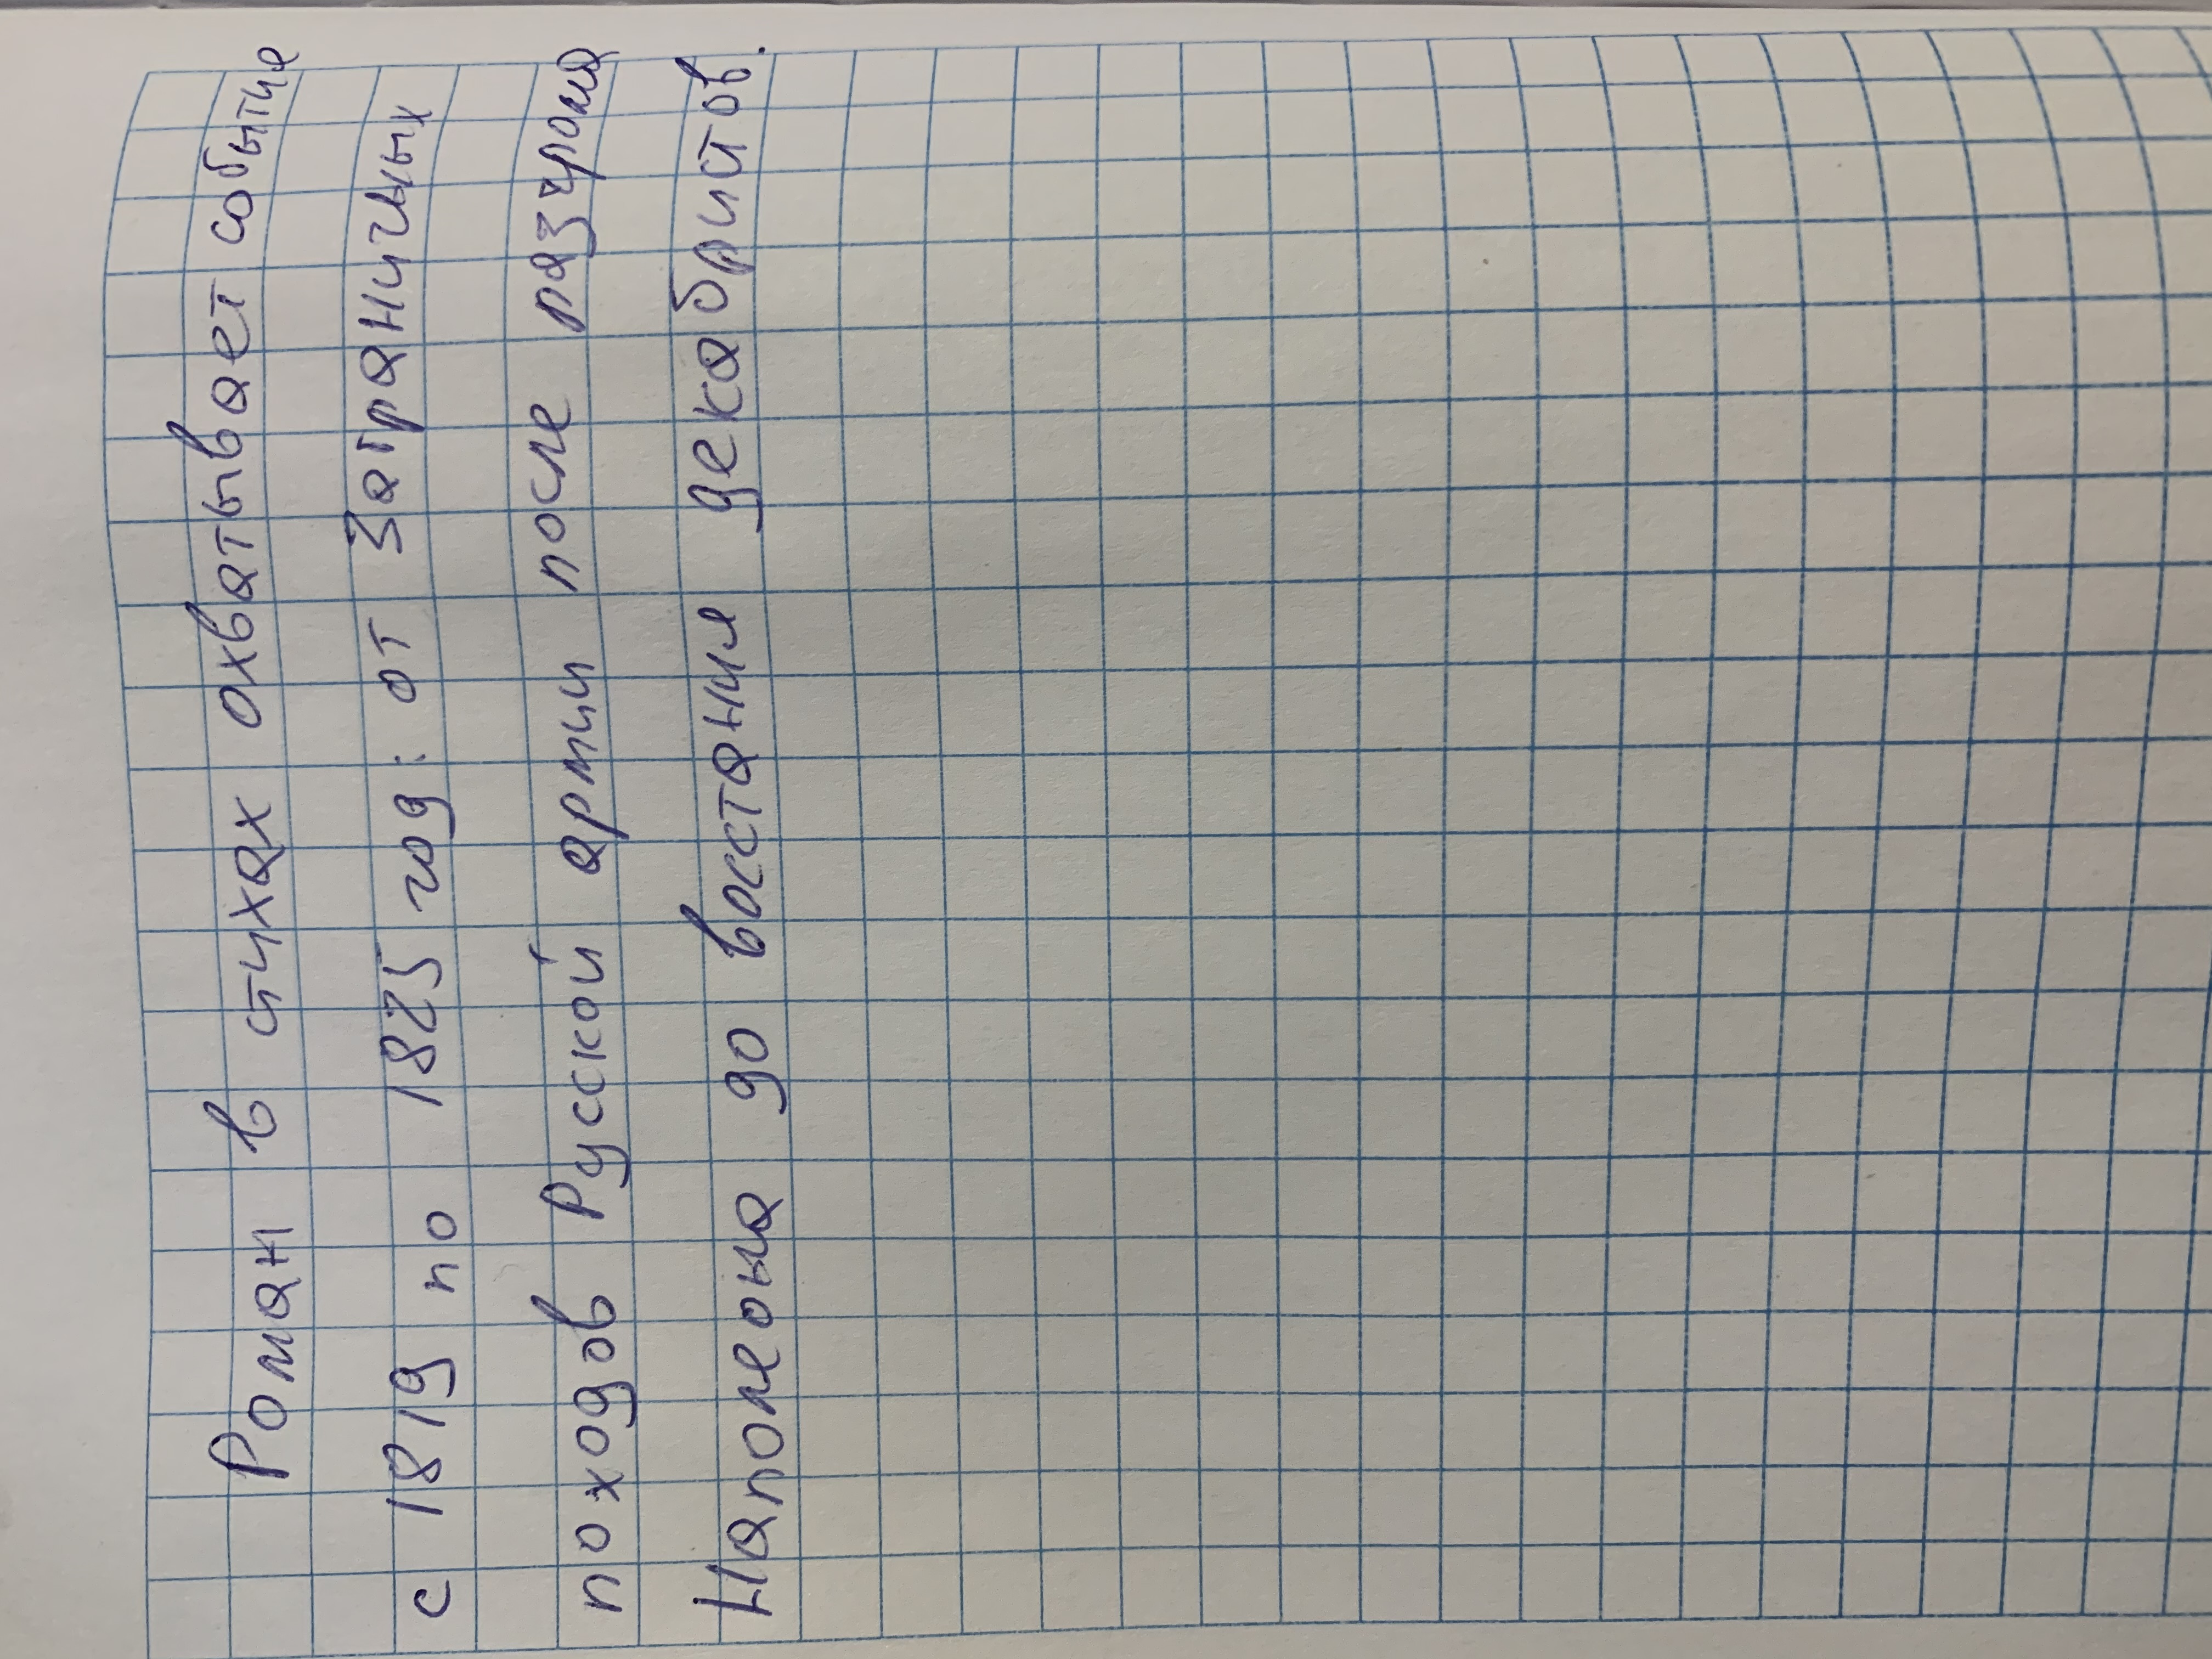 Роман в стихах охватывает события
с 1819 по 1825 год: от Заграничных
походов Русской армии после разгрома
Наполеона до восстания декабристов.